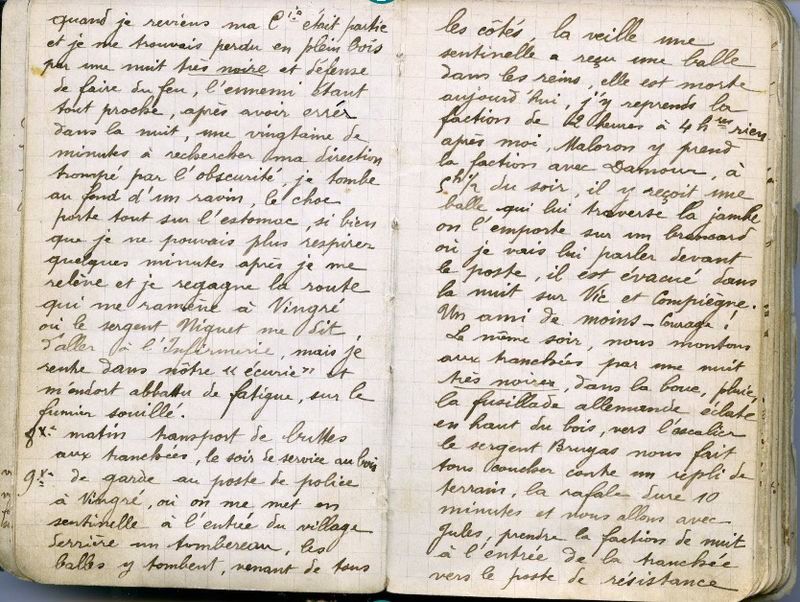 quand je reviens ma Cie était partie
et je me trouvais perdu en plein bois
par une nuit très noire et défense
de faire du feu, l'ennemi étant
tout proche, après avoir errér
dans la nuit, une vingtaine de
minutes à rechercher ma direction
trompé par l'obscurité, je tombe
au fond d'un ravin, le choc
porte tout sur l'estomac, si bien
que je ne pouvais plus respirer
quelques minutes après je me
relève et je regagne la route
qui me ramène à Vingré
où le sergent Niguet me dit
d'aller à l'Infirmerie, mais je
rentre dans nôtre "écurie" et
m'endort abbattu de fatigue, sur le
fumier souillé.
8 Xre matin transport de buttes
aux tranchées, le soir de service au bois
9 Xre de garde au poste de police
à Vingré, où on me met en
sentinelle à l'entrée du village
derrière un tombereau, les
balles y tombent, venant de tous
les côtés, la veille une
sentinelle a reçu une balle
dans les reins, elle est morte
aujourd'hui, j'y reprends la
faction de 12 heures à 4 hres rien
après moi, Maloron y prend
la faction avec Damour, à
du soir, il y reçoit une
balle qui lui traverse la jambe
on l'emporte sur un brancard
où je vais lui parler devant
le poste, il est évacué dans
la nuit sur Vic et Compiègne.
Un ami de moins - Courage !
Le même soir, nous montons
aux tranchées par une nuit
très noirez, dans la boue, pluie,
la fusillade allemande éclate
en haut du bois, vers l'escalier
le sergent Bruyas nous fait
tous coucher contre un repli de
terrain, la rafale dure 10
minutes et nous allons avec
Jules, prendre la faction de nuit
à l'entrée de la tranchée
vers le poste de résistance